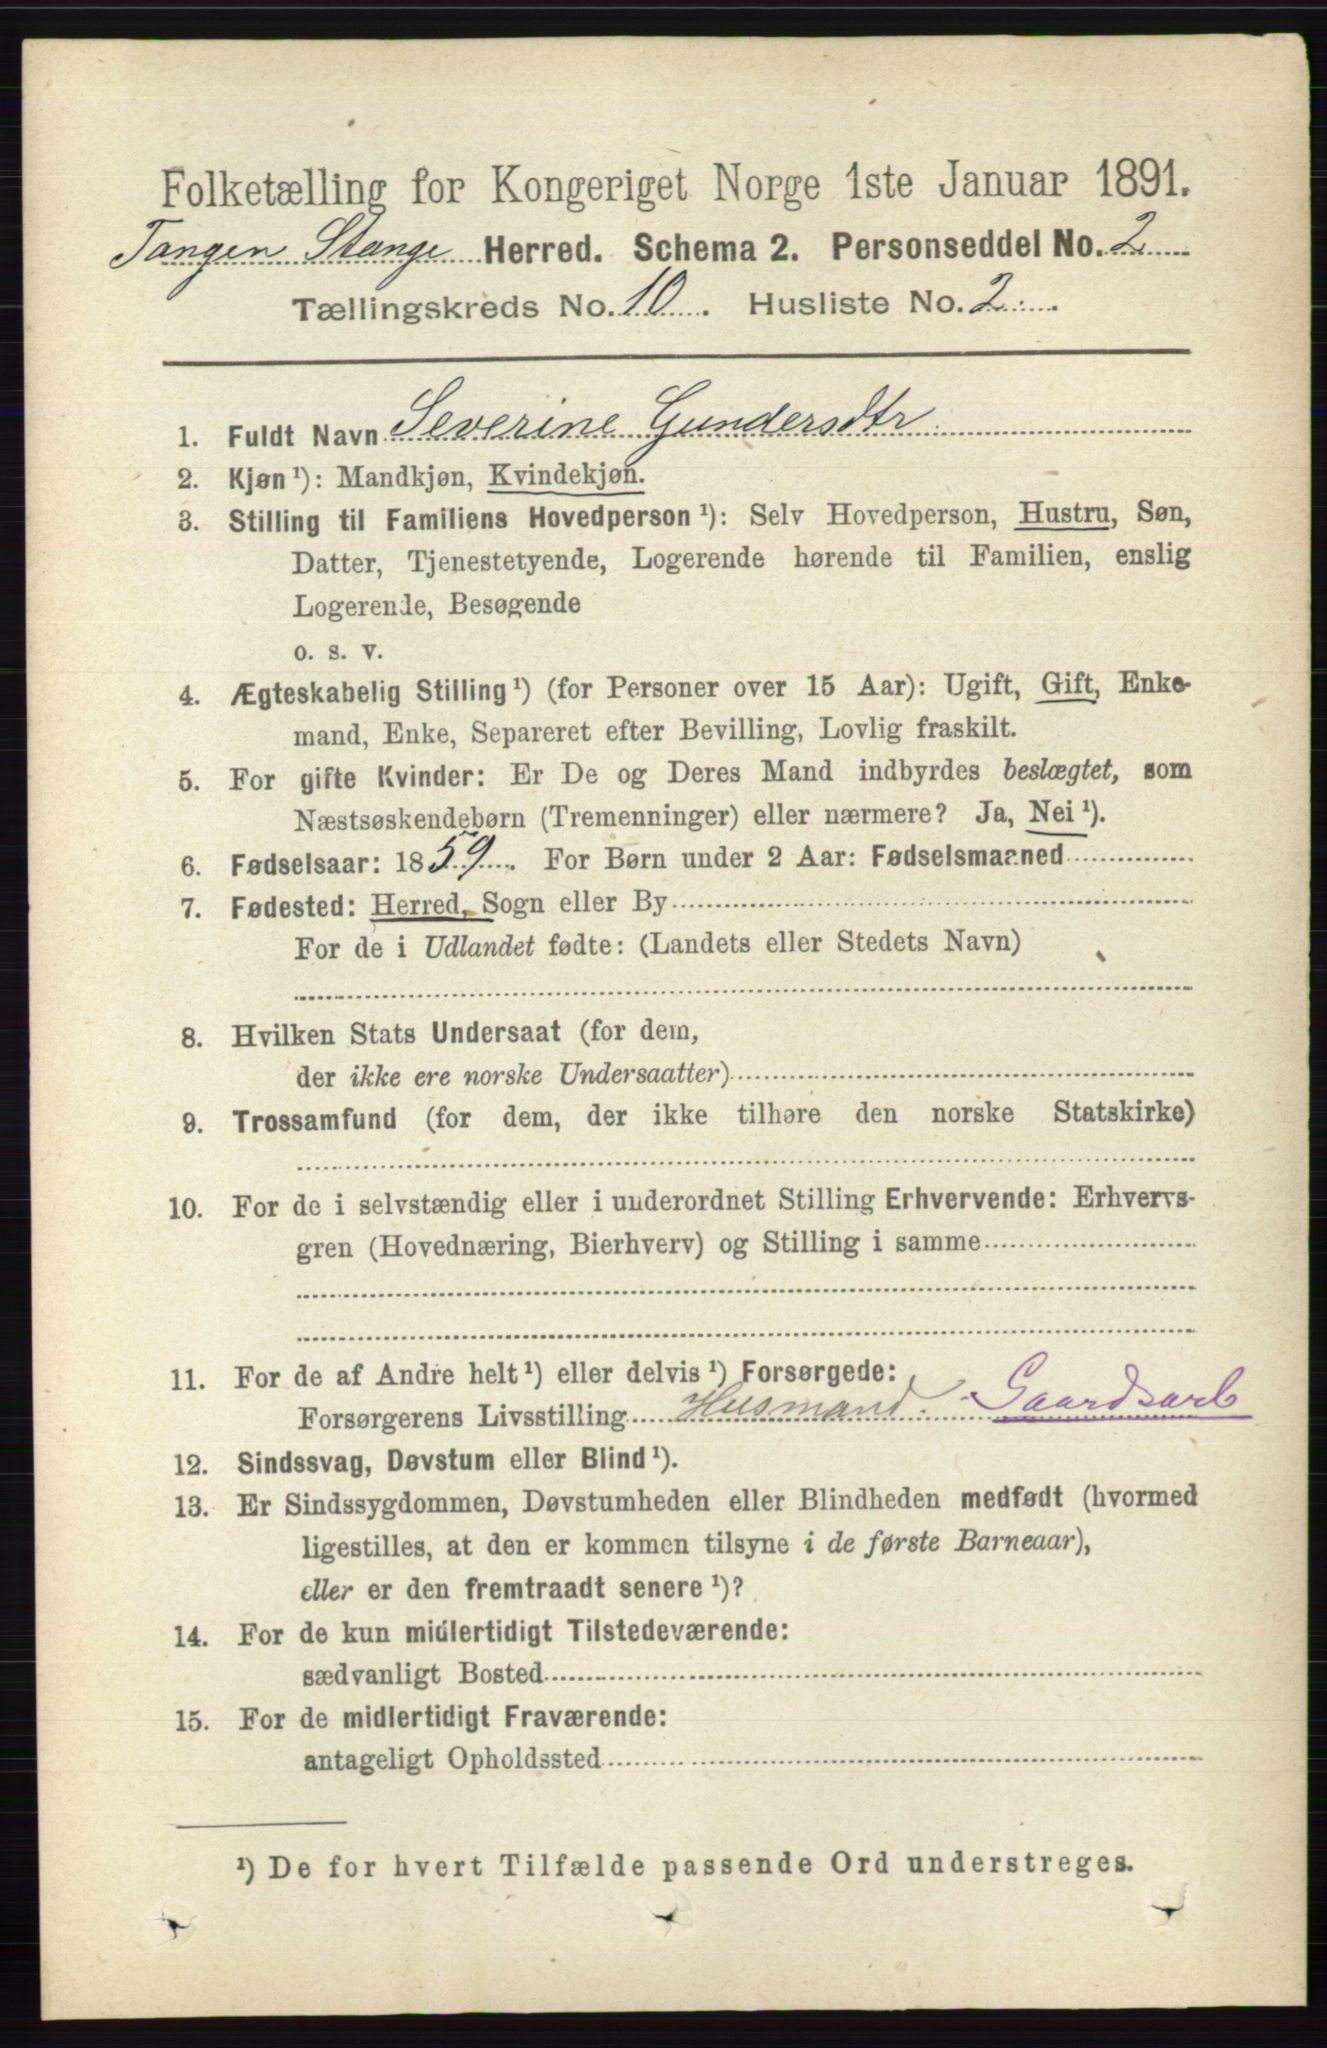 Folketælling for Kongeriget Norge 1ste Januar 1891.
Tangen Stange Herred. Schema 2. Personseddel No. 2
Tællingskreds No. 10. Husliste No. 2.
1. Fuldt Navn Severine Gundersdtr
2. Kjøn ¹): Mandkjøn, Kvindekjøn.
3. Stilling til Familiens Hovedperson ¹): Selv Hovedperson, Hustru, Søn,
Datter, Tjenestetyende, Logerende hørende til Familien, enslig
Logerende, Besøgende
o. s. v.
4. Ægteskabelig Stilling ¹) (for Personer over 15 Aar): Ugift, Gift, Enke-
mand, Enke, Separeret efter Bevilling, Lovlig fraskilt.
5. For gifte Kvinder: Er De og Deres Mand indbyrdes beslægtet, som
Næstsøskendebørn (Tremenninger) eller nærmere? Ja, Nei ¹).
6. Fødselsaar: 1859. For Børn under 2 Aar: Fødselsmaaned
7. Fødested: Herred, Sogn eller By
For de i Udlandet fødte: (Landets eller Stedets Navn)
8. Hvilken Stats Undersaat (for dem,
der ikke ere norske Undersaatter)
9. Trossamfund (for dem, der ikke tilhøre den norske Statskirke)
10. For de i selvstændig eller i underordnet Stilling Erhvervende: Erhvervs-
gren (Hovednæring, Bierhverv) og Stilling i samme
11. For de af Andre helt ¹) eller delvis ¹) Forsørgede:
Forsørgerens Livsstilling Husmand. Gaardsarb
12. Sindssvag, Døvstum eller Blind ¹).
13. Er Sindssygdommen, Døvstumheden eller Blindheden medfødt (hvormed
ligestilles, at den er kommen tilsyne i de første Barneaar),
eller er den fremtraadt senere ¹)?
14. For de kun midlertidigt Tilstedeværende:
sædvanligt Bosted
15. For de midlertidigt Fraværende:
antageligt Opholdssted
¹) De for hvert Tilfælde passende Ord understreges.